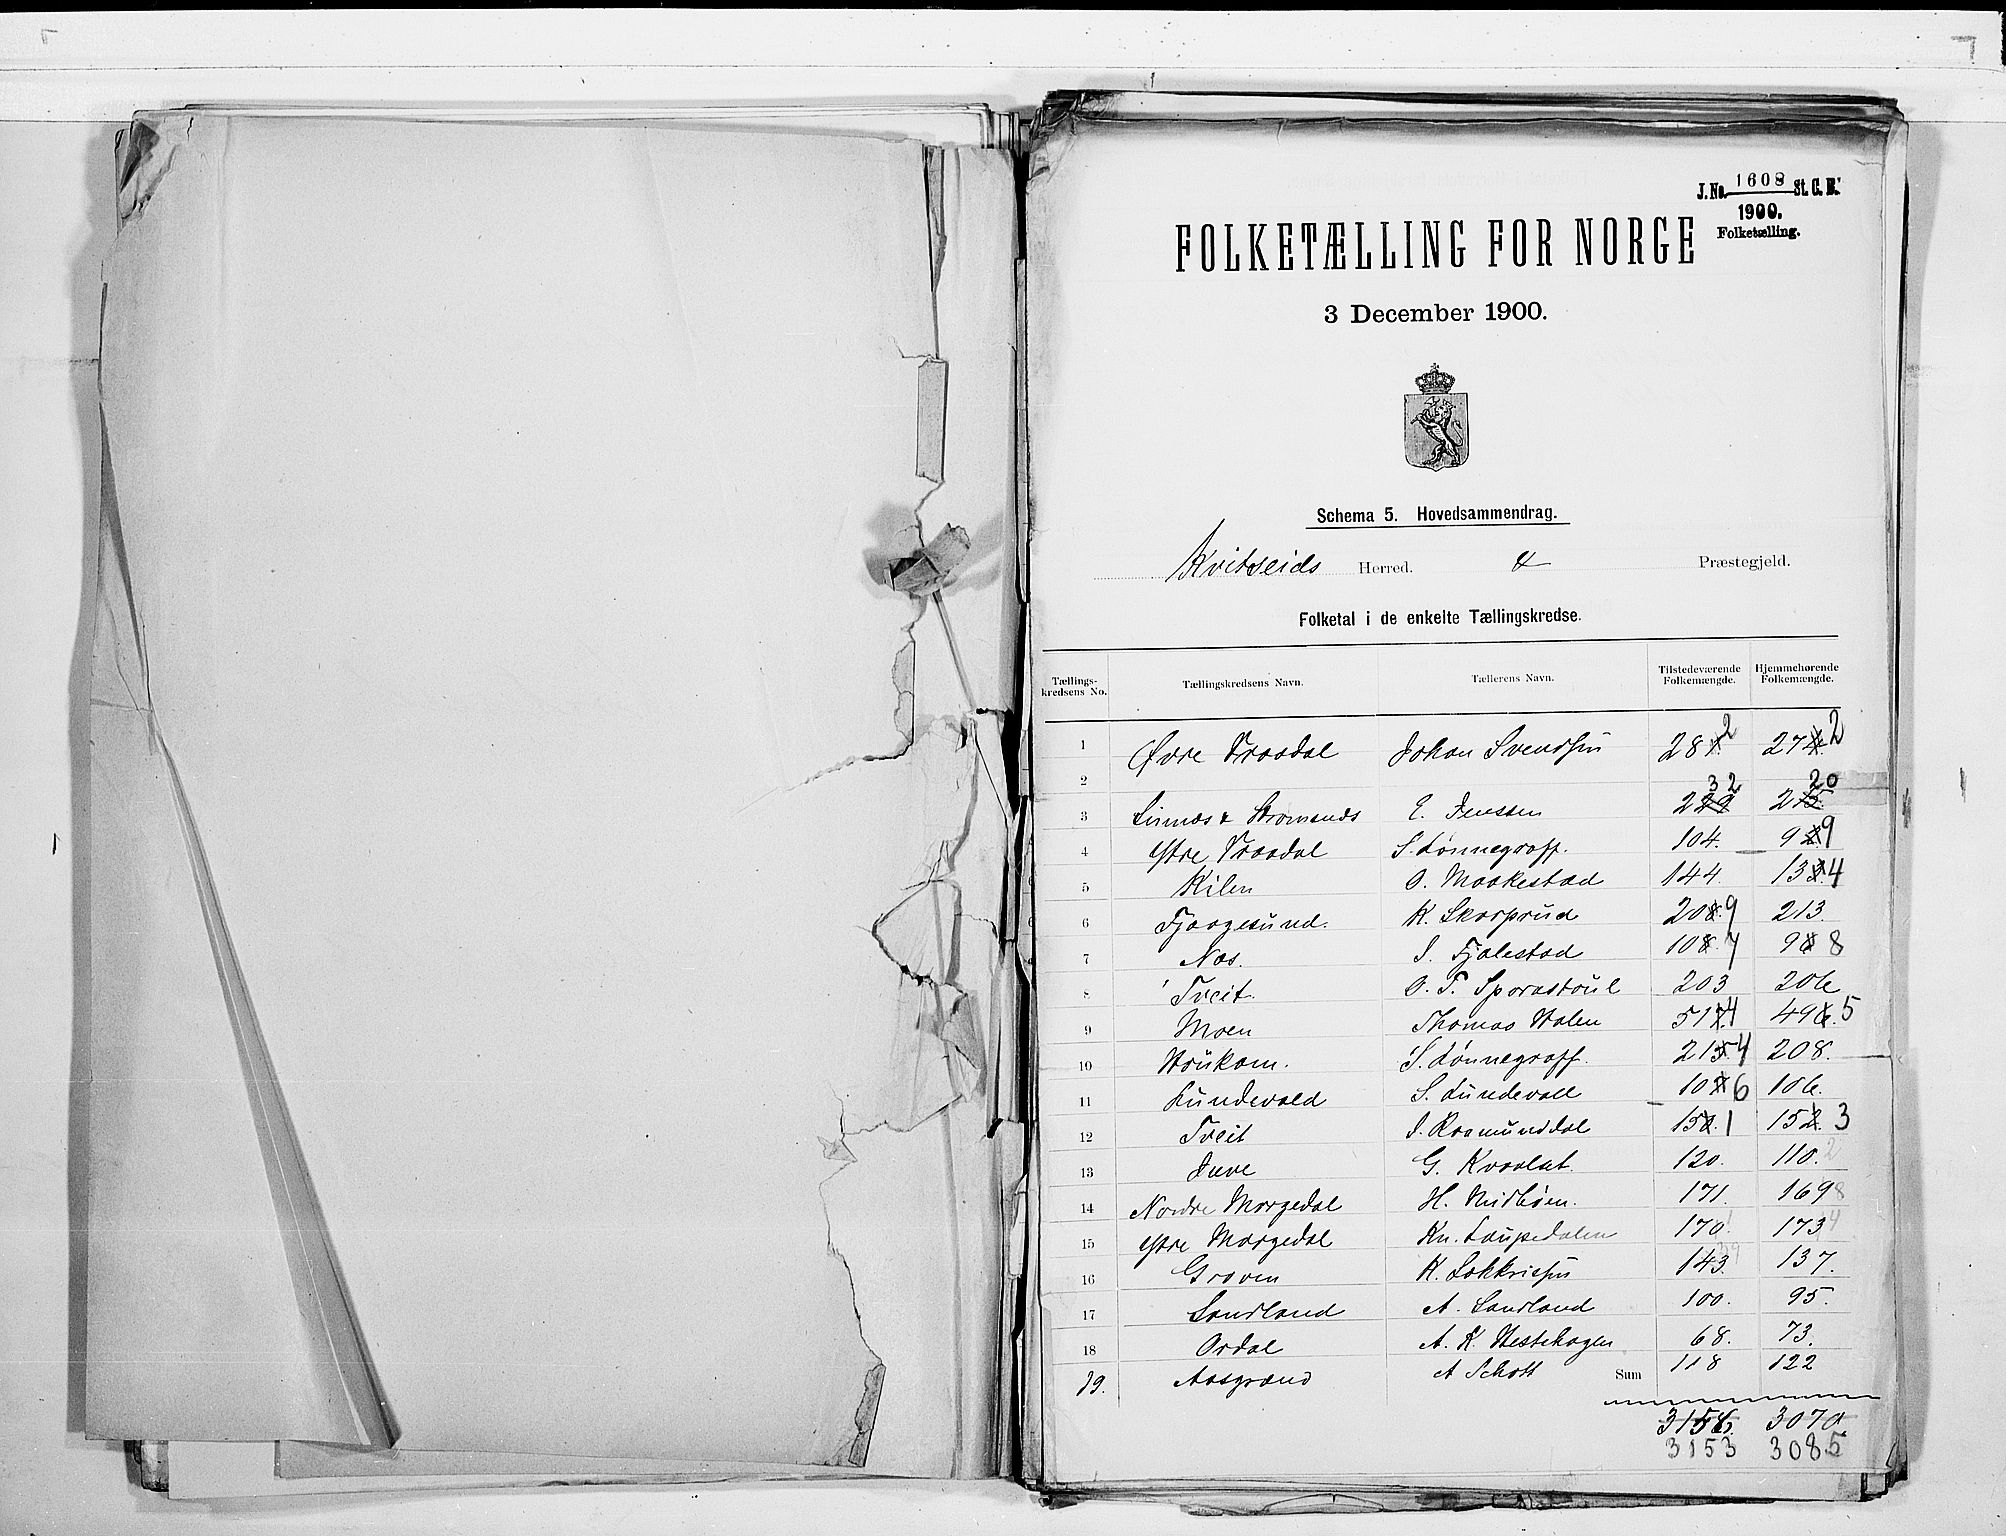 J. No. 1608 St. C. B.
1900.
Folketælling.
FOLKETÆLLING FOR NORGE
3 December 1900.
Schema 5. Hovedsammendrag.
Kvitseids Herred. & Præstegjeld.
Folketal i de enkelte Tællingskredse.
Tællings-kredsens No. Tællingskredsens Navn. Tællerens Navn. Tilstedeværende Folkemængde. Hjemmehørende Folkemængde.
1 Øvre Vraadal Johan Svendsen 282 272
2
3 & Strømunds E. Jenssen 232 220
4 Ytre Vraadal S. Lønnegraff. 104. 99
5 Kilen O. Maakestad 144. 134
6 Fjaagesund. K. Skarprud 209 213.
7 Næs. S. Fjalestad 107 98
8 Tveit. O. T. Sporastøul 203 206
9 Moen Thomas Holen 514 495
10 Houkom. S. Lønnegraff. 214 208.
11 Lundevald S. Lundevall 106 106.
12 Tveit S. Roamunddal 151 153
13 Juve G. Kvaalset. 120. 110. 2
14 Nordre Morgedal H. Midbøen. 171. 169 8
15 Ytre Morgedal Kn. Laupedalen 170. 173 4
16 Graven K. Lokkrisjun 143. 137.
17 Sandland A. Sandland 100. 95.
18 Ordal A. K. Hestehagen 68. 73.
19. Aasgrænd A Schott Sum 118 122
3156. 3070
3153 3085